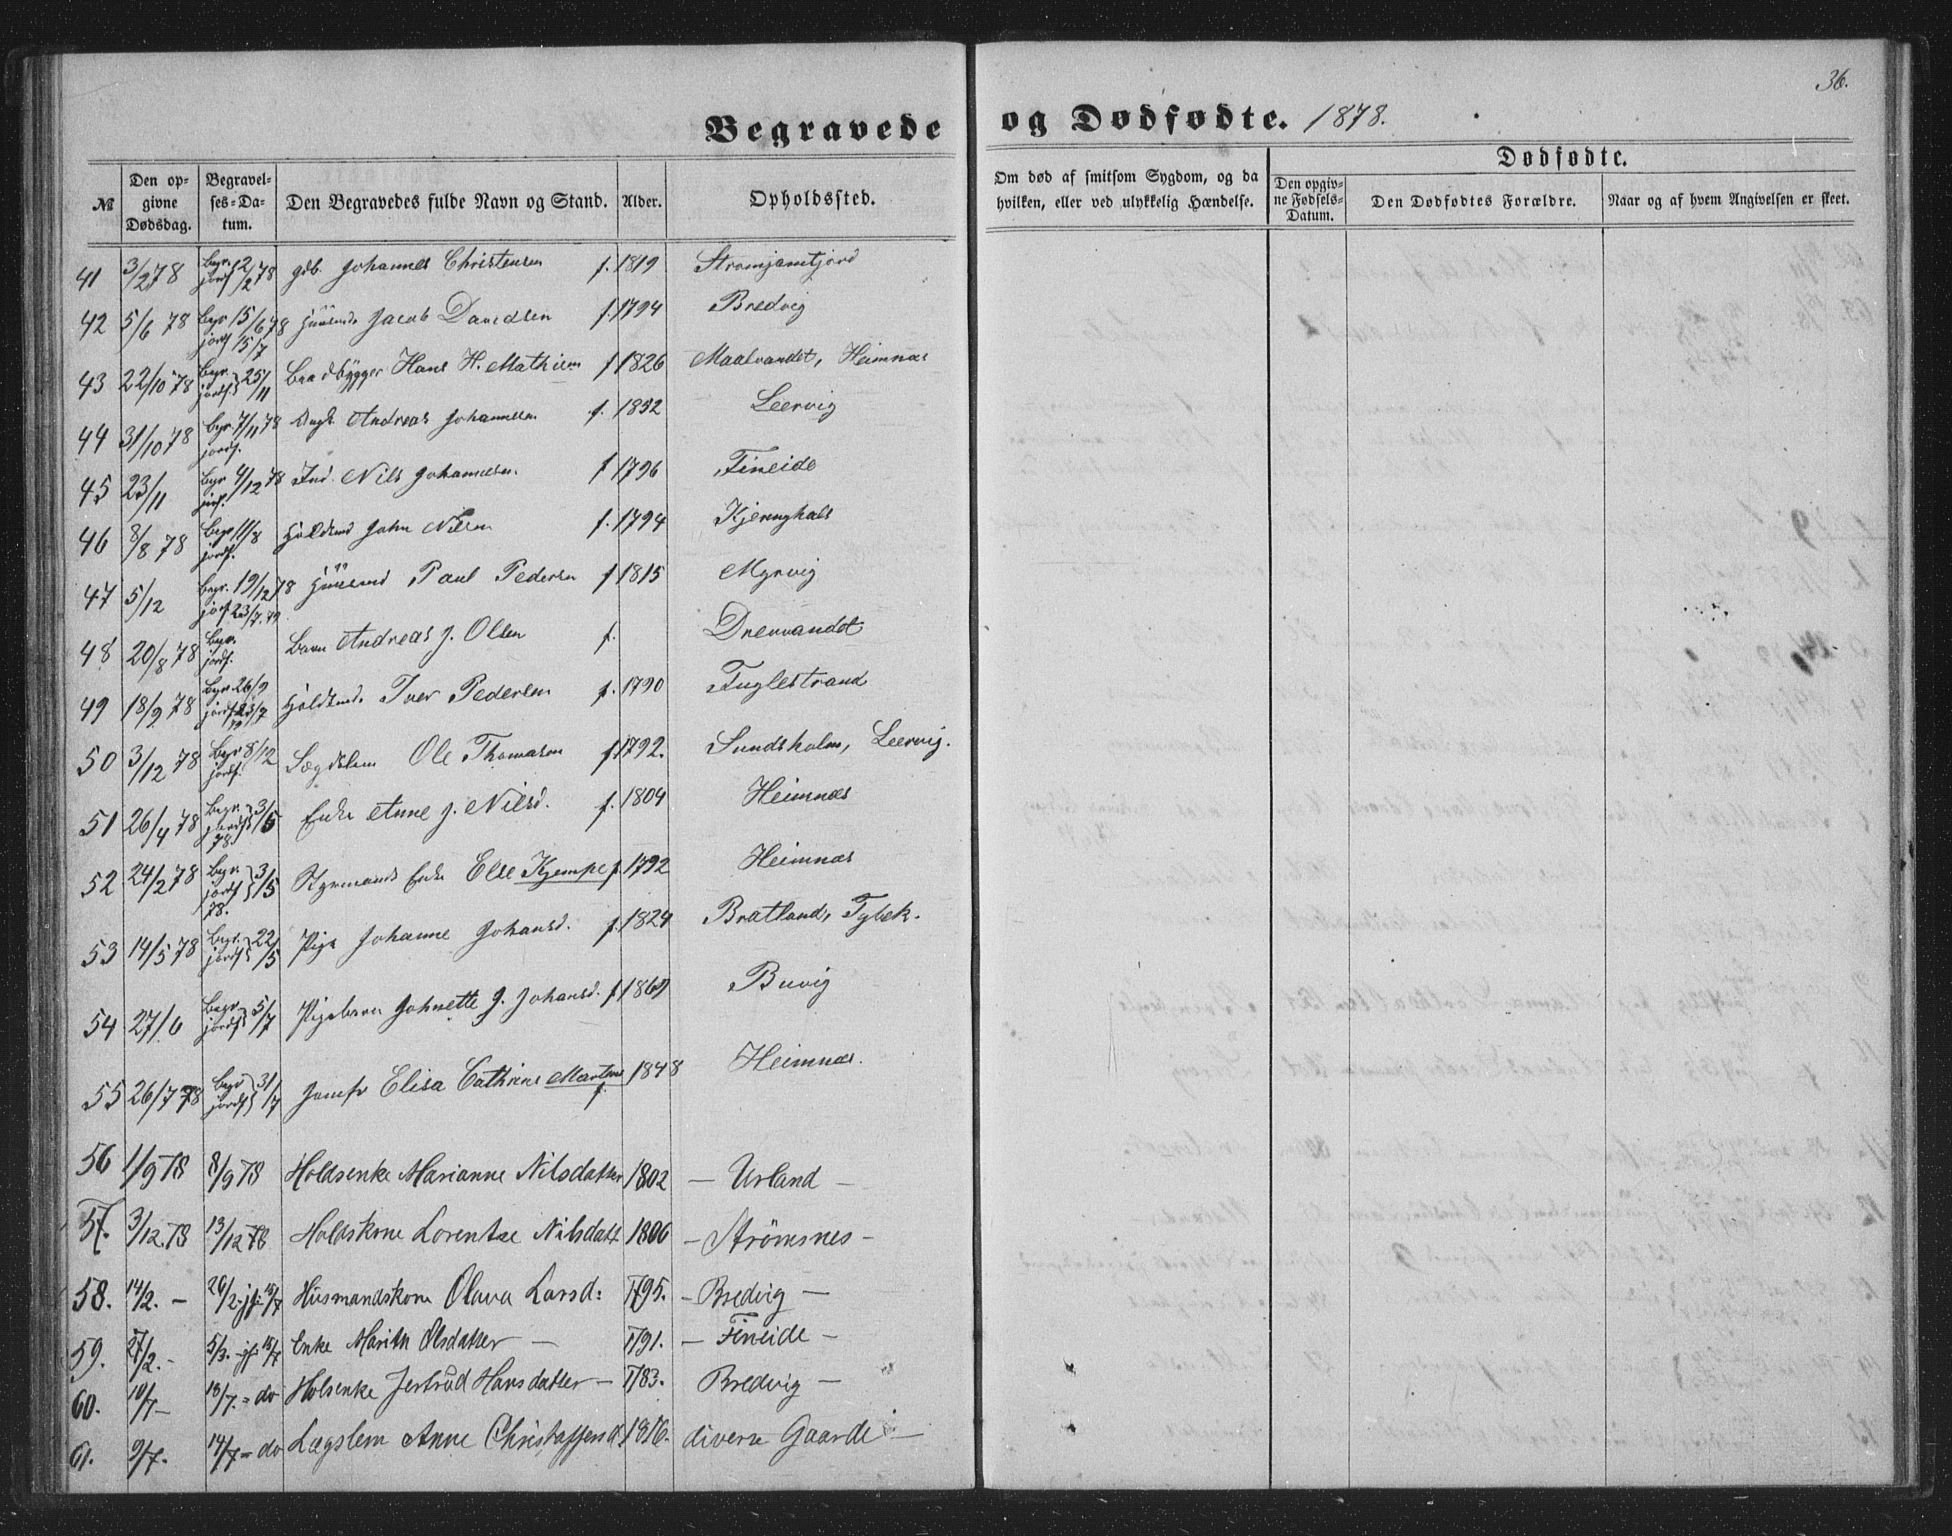 36.
Begravede og Dødfødte. 1878.
№ Den opgivne Dødsdag. Begravelses-Datum. Den Begravedes fulde Navn og Stand. Alder. Opholdssted. Om død af smitsom Sygdom, og da hvilken, eller ved ulykkelig Hændelse. Dødfødte. Den opgivne Fødsels-Datum. Den Dødfødtes Forældre. Naar og af hvem Angivelsen er skeet.
41 3/2 78 Begr. jordf 12/2 78 gdb. Johannes Christensen f. 1819
42 5/6 78 Begr 15/6 78 jordf 15/7 Jacob Davidsen f. 1794 Bredvig
43 22/10 78 Begr. jordf. 25/11 Hans H. Mathisen f 1826 Maalvandet, Heimnæs
44 31/10 78 Begr 7/11 78 jordf. Ungk. Andreas Johannesen f. 1852 Leervig
45 23/11 Begr 4/12 78 jordf. Ind. Nils Johannesen f 1796 Fineide
46 8/8 78 Begr 11/8 jordf. John Nilsen f. 1794 Kjerringhals
47 5/12 Begr. 19/12 78 jordf 23/7. 79. Paul Pedersen f 1815 Myrvig
48 20/8 78 Begr. jordf. Barn Andreas J. Olsen f. Drevvandet
49 18/9 78 Begr 26/9 Iver Pedersen f. 1790 Fuglestrand
50 3/12 78 Begr 8/12 jordf. Lægdslem Ole Thomasen f 1792. Sundsholm, Leervig.
51 26/4 78 Begr. jordf 3/5 78. Enke Anne J. Nilsd. f. 1804 Heimnæs
52 24/2 78 Begr. jordf 3/5 78. Styrmands Enke Else Kjempe f. 1792 Heimnæs
53 14/5 78 Begr. jordf 22/5 Pige Johanne Johansd. f. 1824 Bratland, Tybek.
54 27/6 Begr. jordf 5/7 Pigebarn Johnette J. Johansd. f 1869 Buvig
55 26/7 78 Begr jordf 31/7 Jomfr Elisa Cathrine Martens f. 1848 Heimnæs.
56 1/9 78 8/9 78 Holdsenke Marianne Nilsdatter 1802 — Urland —
57. 3/12. 78 13/12 78 Holdskone Lorentze Nilsdatt 1806 — Strömsnes —
58. 14/2. — 26/2. jf. 15/7 Husmandskone Olava Larsd: 1795. — Bredvig —
59. 27/2. — 5/3. jf. 15/7 Enke Marith Olsdatter — 1791. — Fineide —
60. 10/7 — 13/7. = do Holsenke Jertrud Hansdatter — 1783. Bredvig —
61. 9/7. 14/7 = do Lægslem Anne Christoffersd. 1816. diverse Gaarde —